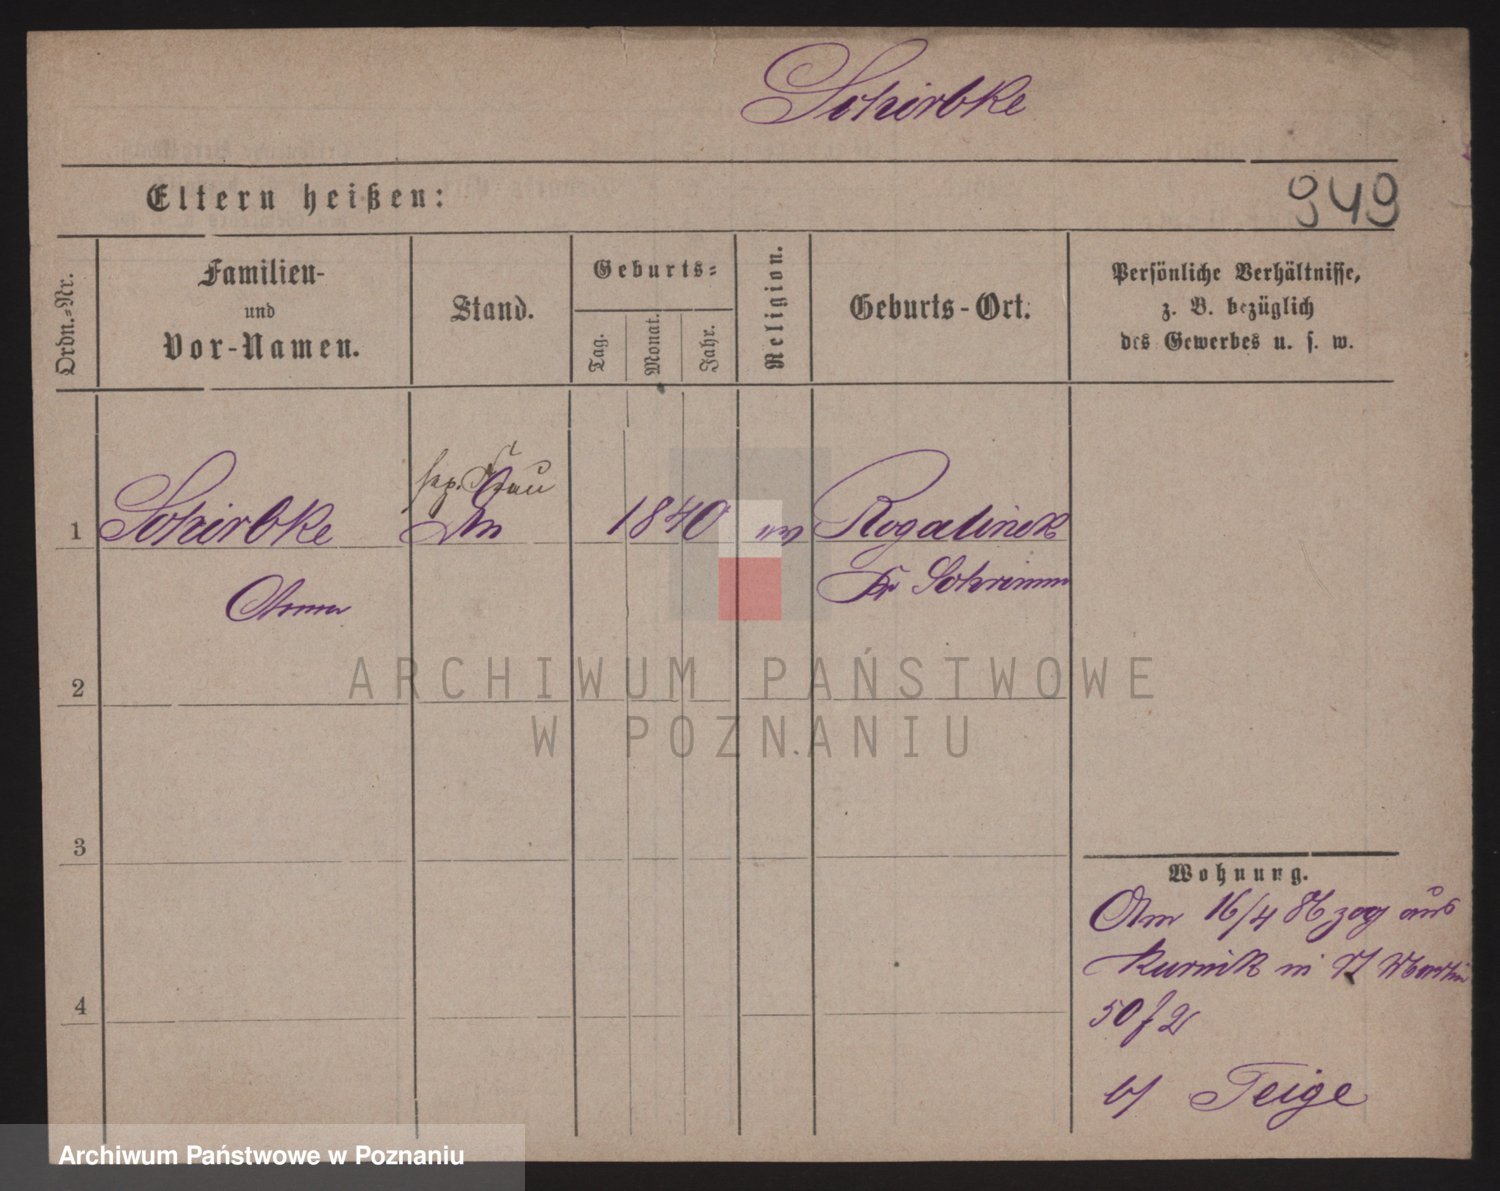 Schirbke
Eltern heißen:
949
Ordn.-Nr.
Familien-
und
Vor-Namen.
Stand.
Geburts-
Tag.
Monat.
Jahr.
Religion.
Geburts-Ort.
Persönliche Verhältnisse,
z. B. bezüglich
des Gewerbes u. s. w.
sep. Frau
1 Schirbke 1840 ev Rogalinek
Anna Kr Schrimm
2
3
4
Wohnung.
Am 16/4 zog aus
Kurnik in St Martin
50
b/ Teige
ARCHIWUM PAŃSTWOWE
W POZNANIU
Archiwum Państwowe w Poznaniu